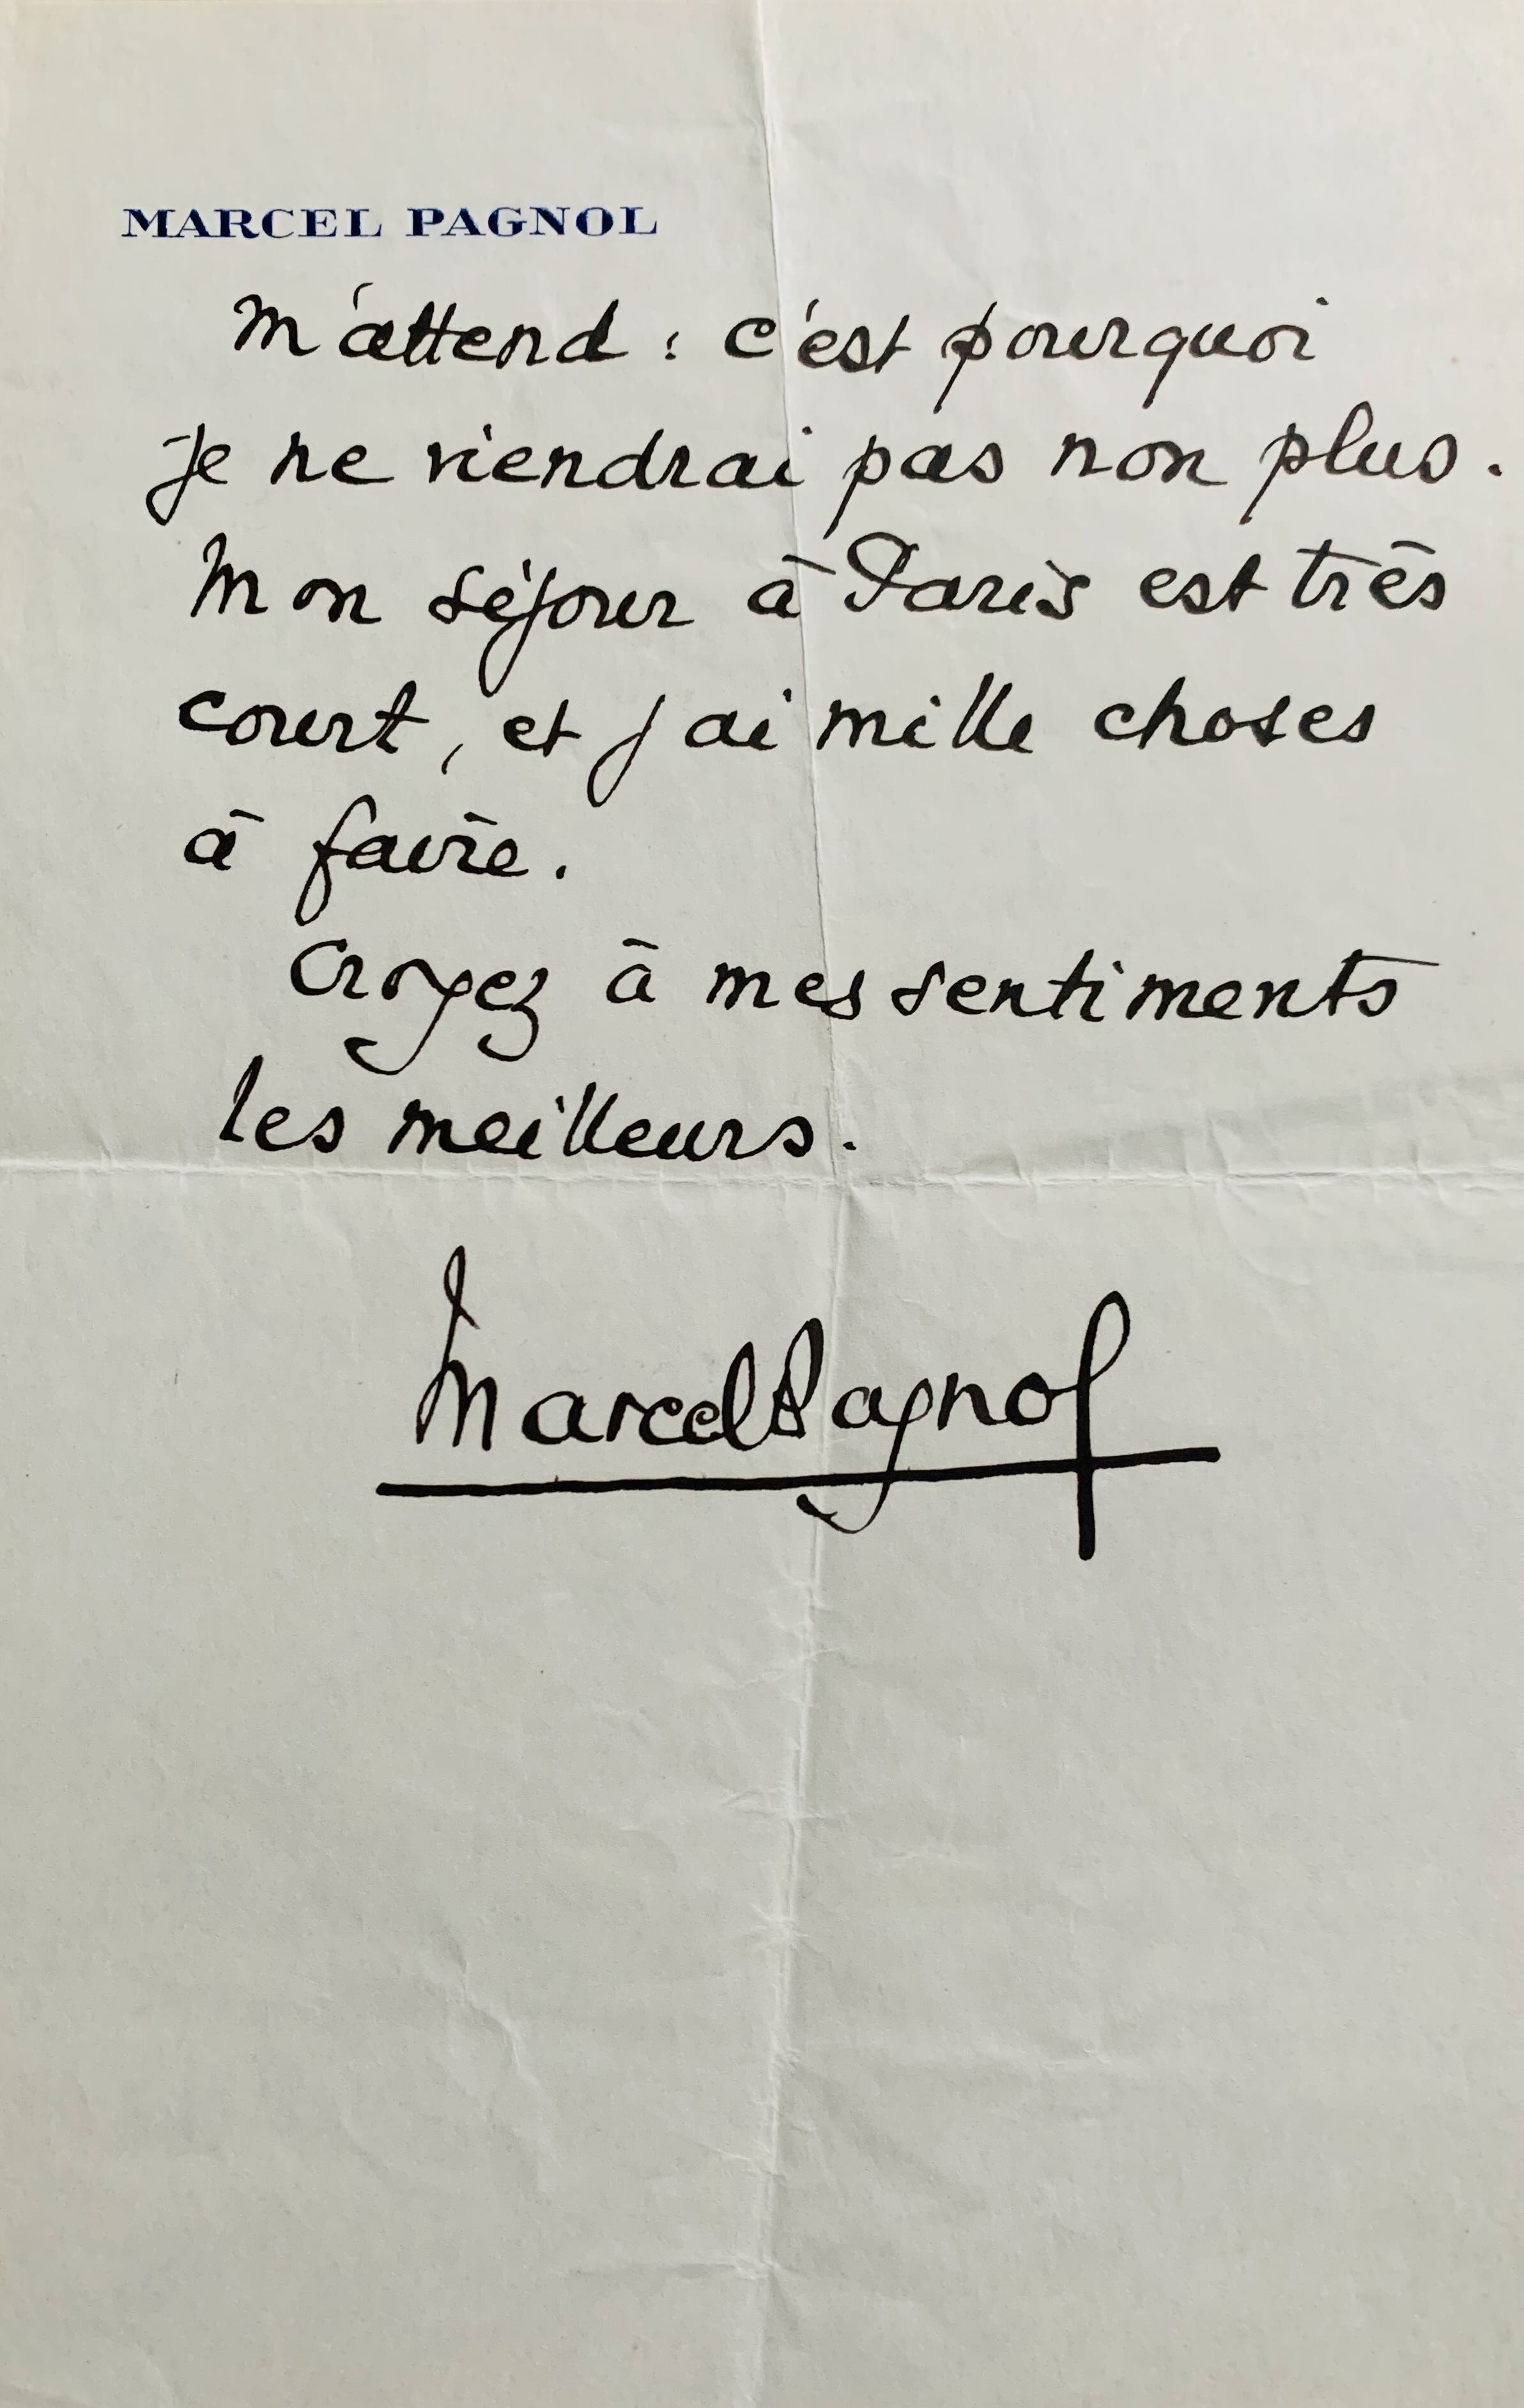 MARCEL PAGNOL
m'attend : c'est pourquoi
je ne viendrai pas non plus.
Mon séjour à Paris est très
court, et j'ai mille choses
à faire.
Croyez à mes sentiments
les meilleurs.
Marcel Pagnol